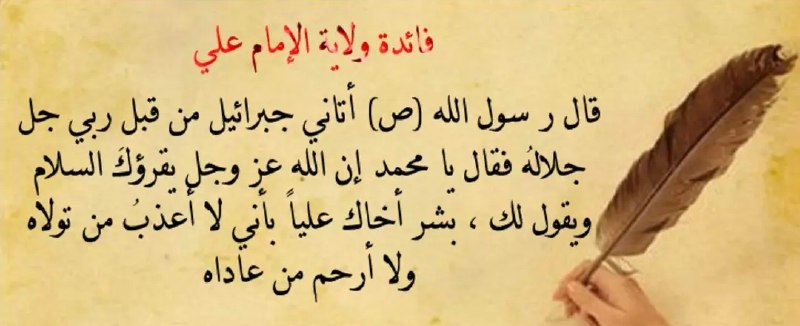 فائدة ولاية الإمام علي
قال ر سول الله (ص) أتاني جبرائيل من قبل ربي جل
جلالهُ فقال يا محمد إن الله عز وجل يقرؤكَ السلام
ويقول لك ، بشر أخاك علياً بأني لا أعذبُ من تولاه
ولا أرحم من عاداه